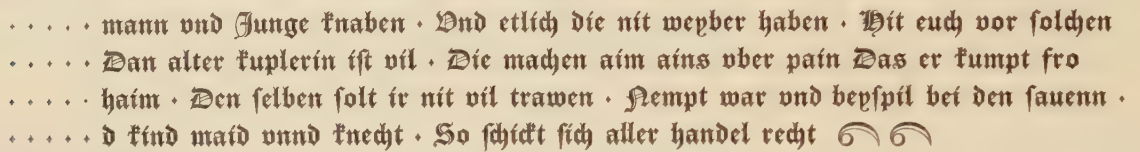 . . . . . mann vnd Junge knaben · Vnd etlich die nit weyber haben · Hit euch vor solchen
. . . . . Dan alter kuplerin ist vil · Die machen aim ains vber pain Das er kumpt fro
. . . . . haim · Den selben solt ir nit vil trawen · Nempt war vnd beyspil bei den sauenn ·
. . . . . d kind maid vnnd knecht · So schickt sich aller handel recht